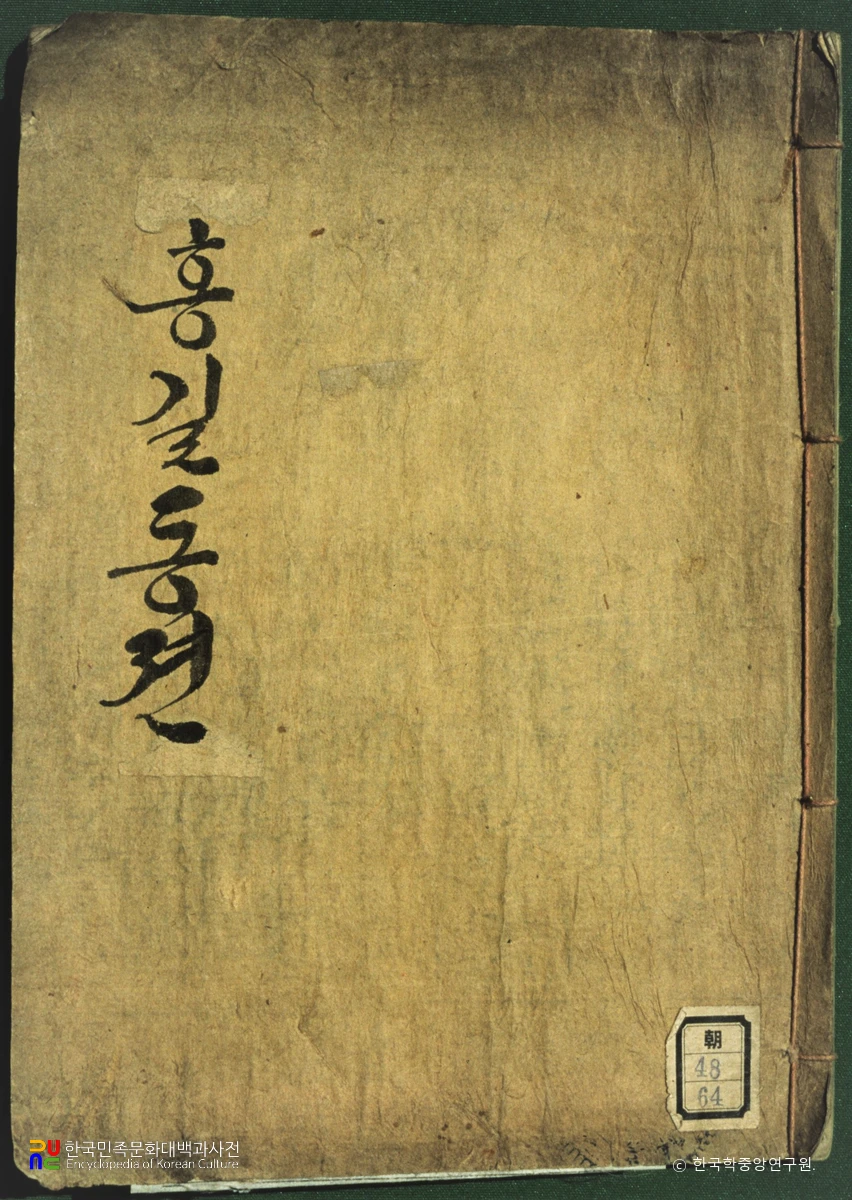 홍길동젼
朝
48
64
한국민족문화대백과사전
Encyclopedia of Korean Culture
© 한국학중앙연구원.